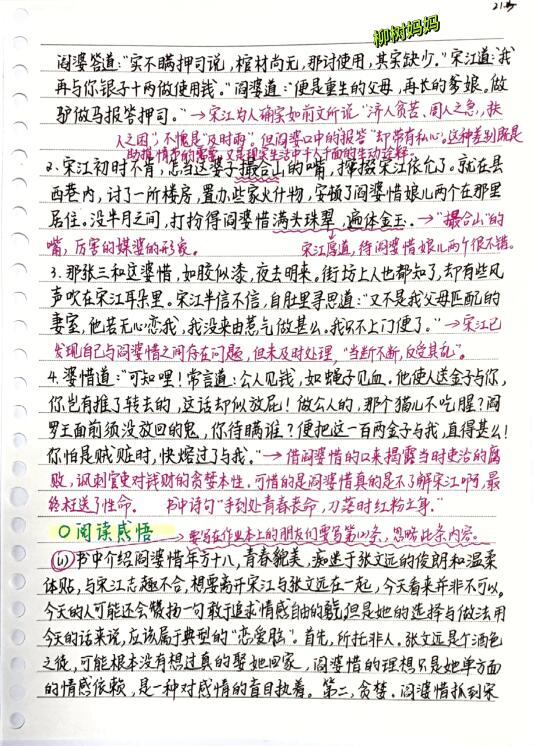 21-
柳树妈妈
阎婆答道:"实不瞒押司说,棺材尚无,那讨使用,其实缺少。"宋江道:"我
再与你银子十两做使用钱。"阎婆道:"便是重生的父母,再长的爹娘。做
驴做马报答押司。"→宋江为人确实如前文所说"济人贫苦,周人之急,扶
人之困",不愧是"及时雨",但阎婆口中的"报答"却带有私心。这种差别既是
助推情节的需要,又是现实生活中千人千面的生动诠释。
2、宋江初时不肯,怎当这婆子撮合山的嘴,撺掇宋江依允了。就在县
西巷内,讨了一所楼房,置办些家火什物,安顿了阎婆惜娘儿两个在那里
居住。没半月之间,打扮得阎婆惜满头珠翠,遍体金玉。→"撮合山"的
嘴,厉害的媒婆的形象。 宋江厚道,待阎婆惜娘儿两个很不错。
3.那张三和这婆惜,如胶似漆,夜去明来。街坊上人也都知了,却有些风
声吹在宋江耳朵里。宋江半信不信,自肚里寻思道:"又不是我父母匹配的
妻室,他若无心恋我,我没来由惹气做甚么。我只不上门便了。"→宋江已
发现自己与阎婆惜之间存在问题,但未及时处理,"当断不断,反受其乱"。
4.婆惜道:"可知哩!常言道:公人见钱,如蝇子见血。他使人送金子与你,
你岂有推了转去的,这话却似放屁!做公人的,那个猫儿不吃腥?阎
罗王面前须没放回的鬼,你待瞒谁?便把这一百两金子与我,直得甚么!
你怕是贼赃时,快熔过了与我。"→借阎婆惜的口来揭露当时吏治的腐
败,讽刺官吏对钱财的贪婪本性。可惜的是阎婆惜真的是不了解宋江啊,最
终枉送了性命。 书中诗句"手到处青春丧命,刀落时红粉亡身。"
○阅读感悟 →要写在作业本上的朋友们要写第(2)条,忽略此条内容。
(1)书中介绍阎婆惜年方十八,青春貌美,痴迷于张文远的俊朗和温柔
体贴,与宋江志趣不合,想要离开宋江与张文远在一起,今天看来并非不可以。
今天的人可能还会赞扬一句敢于追求情感自由的,但是她的选择与做法用
今天的话来说,应该属于典型的"恋爱脑"。首先,所托非人。张文远是个酒色
之徒,可能根本没有想过真的娶她回家,阎婆惜的理想只是她单方面
的情感依赖,是一种对感情的盲目执着。第二,贪婪。阎婆惜抓到宋